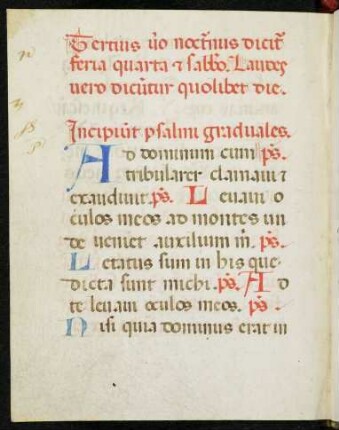 Tertius ṽo noct̃nus dicit̃
feria quarta ⁊ sabb̃o. Laudes
vero dicũtur quolibet die.
Incipiũt psalmi graduales.
AD dominum cum ps̃.
tribularer clamaui ⁊
exaudiuit. ps̃. Leuaui o
culos meos ad montes un
de veniet auxilium m̃. ps̃.
Letatus sum in his que
dicta sunt michi. ps̃. Ad
te leuaui oculos meos. ps̃.
Nisi quia dominus erat in